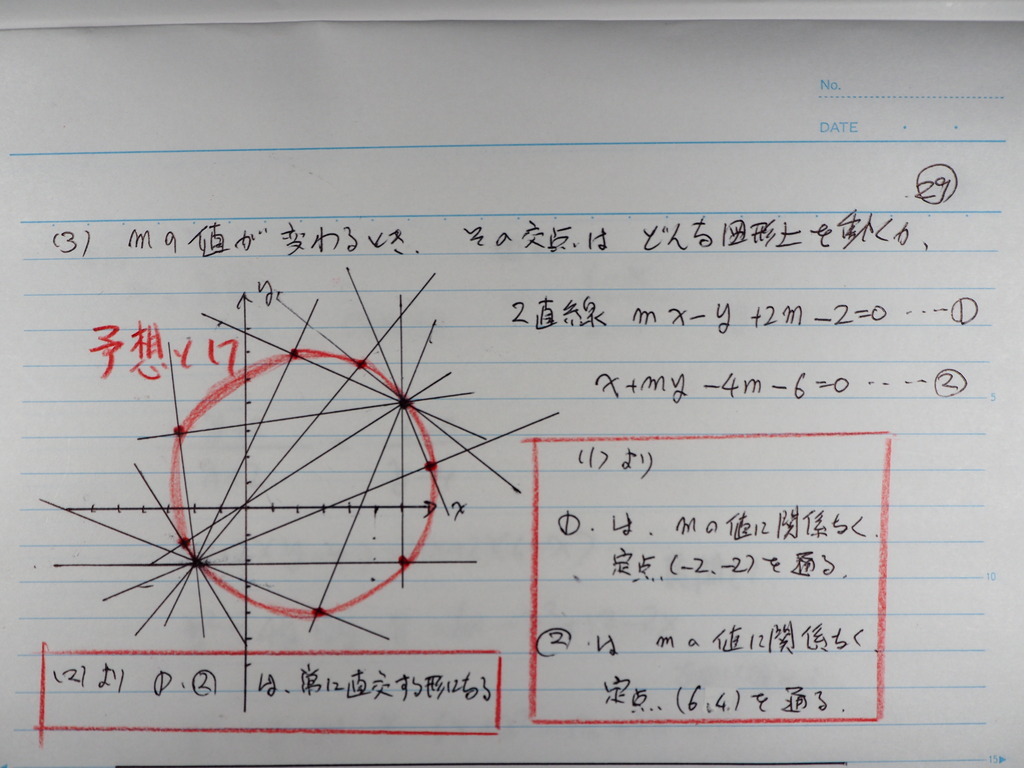 No.
DATE
29
(3) mの値が変わるとき、その交点はどんな図形上を動くか、
2直線 mx-y+2m-2=0 ‥‥①
x+my-4m-6=0 ‥‥②
予想として
y
x
(1)より
①は、mの値に関係なく
定点(-2,-2)を通る。
②は mの値に関係なく
定点(6,4)を通る。
(2)より ①、②は、常に直交する形になる
5
10
15